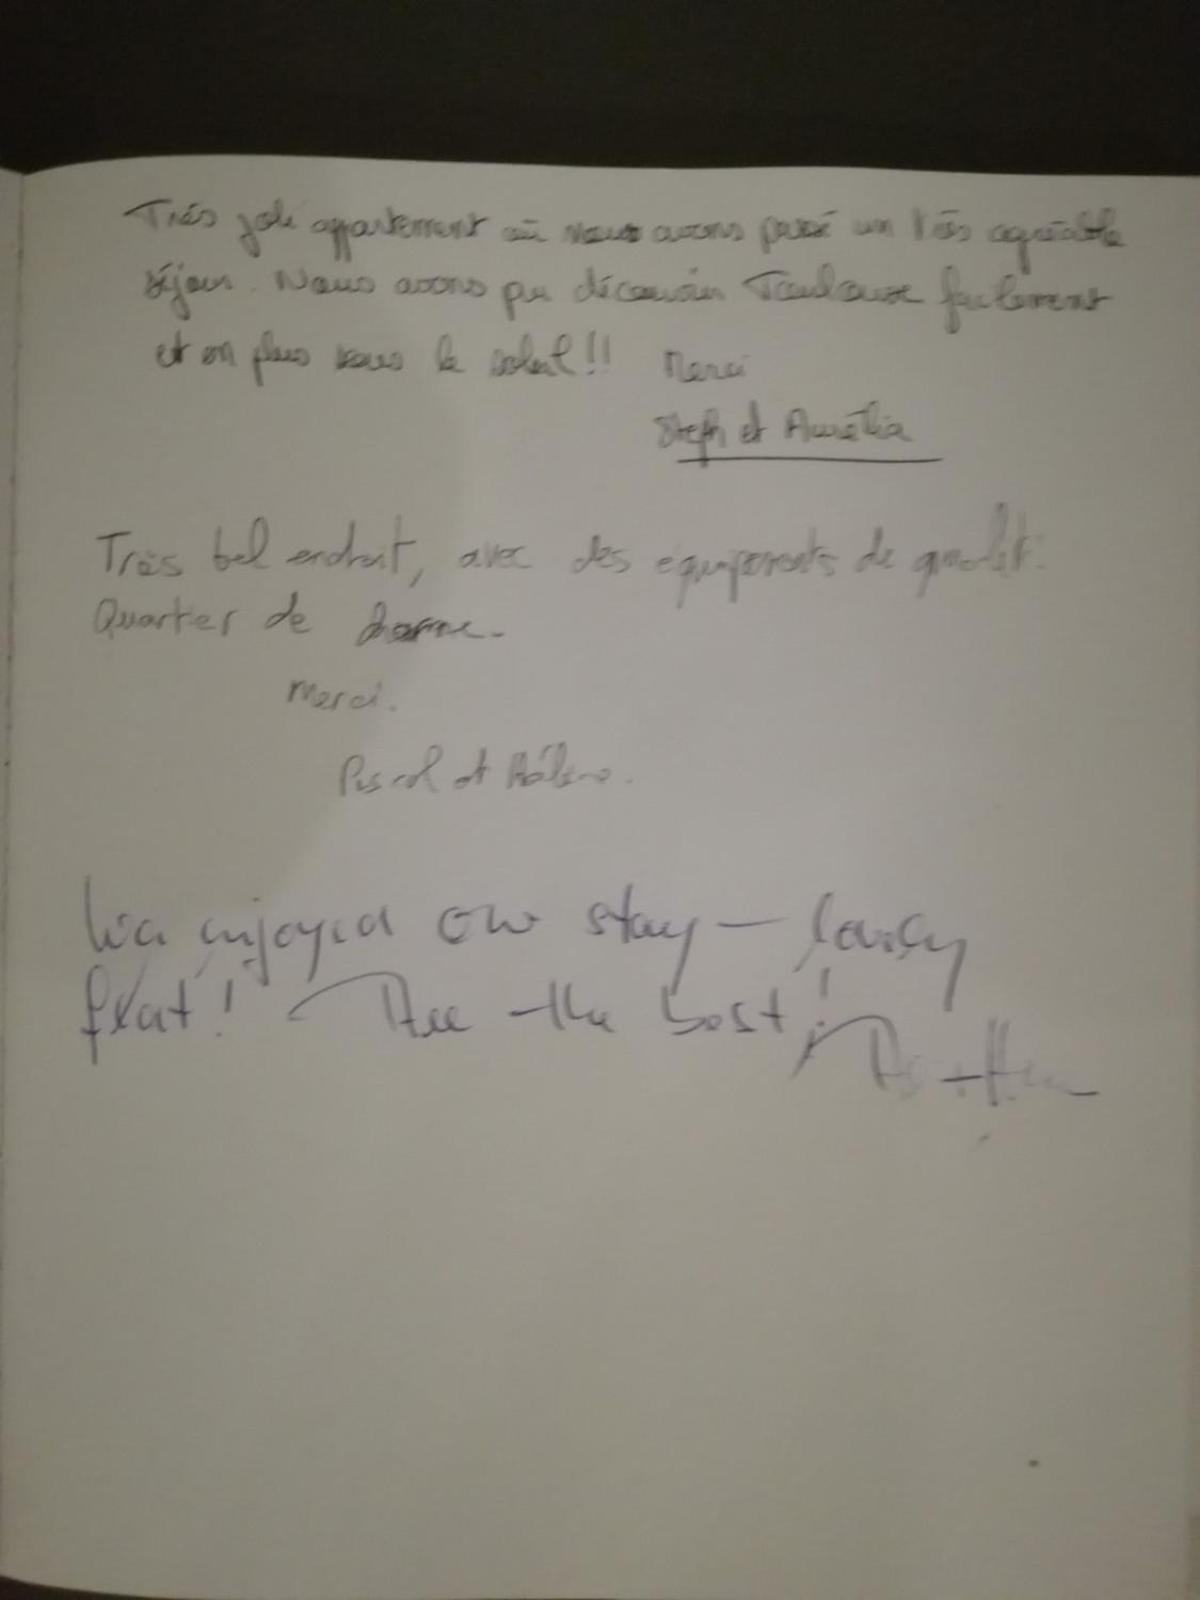 Très joli appartement où nous avons passé un très agréable
séjour. Nous avons pu découvrir Toulouse facilement
et en plus sous le soleil!! Merci
Steph et Aurélia
Très bel endroit, avec des équipements de qualité.
Quartier de charme.
Merci.
Pascal et Hélène.
We enjoyed our stay — lovely
flat! All the best!